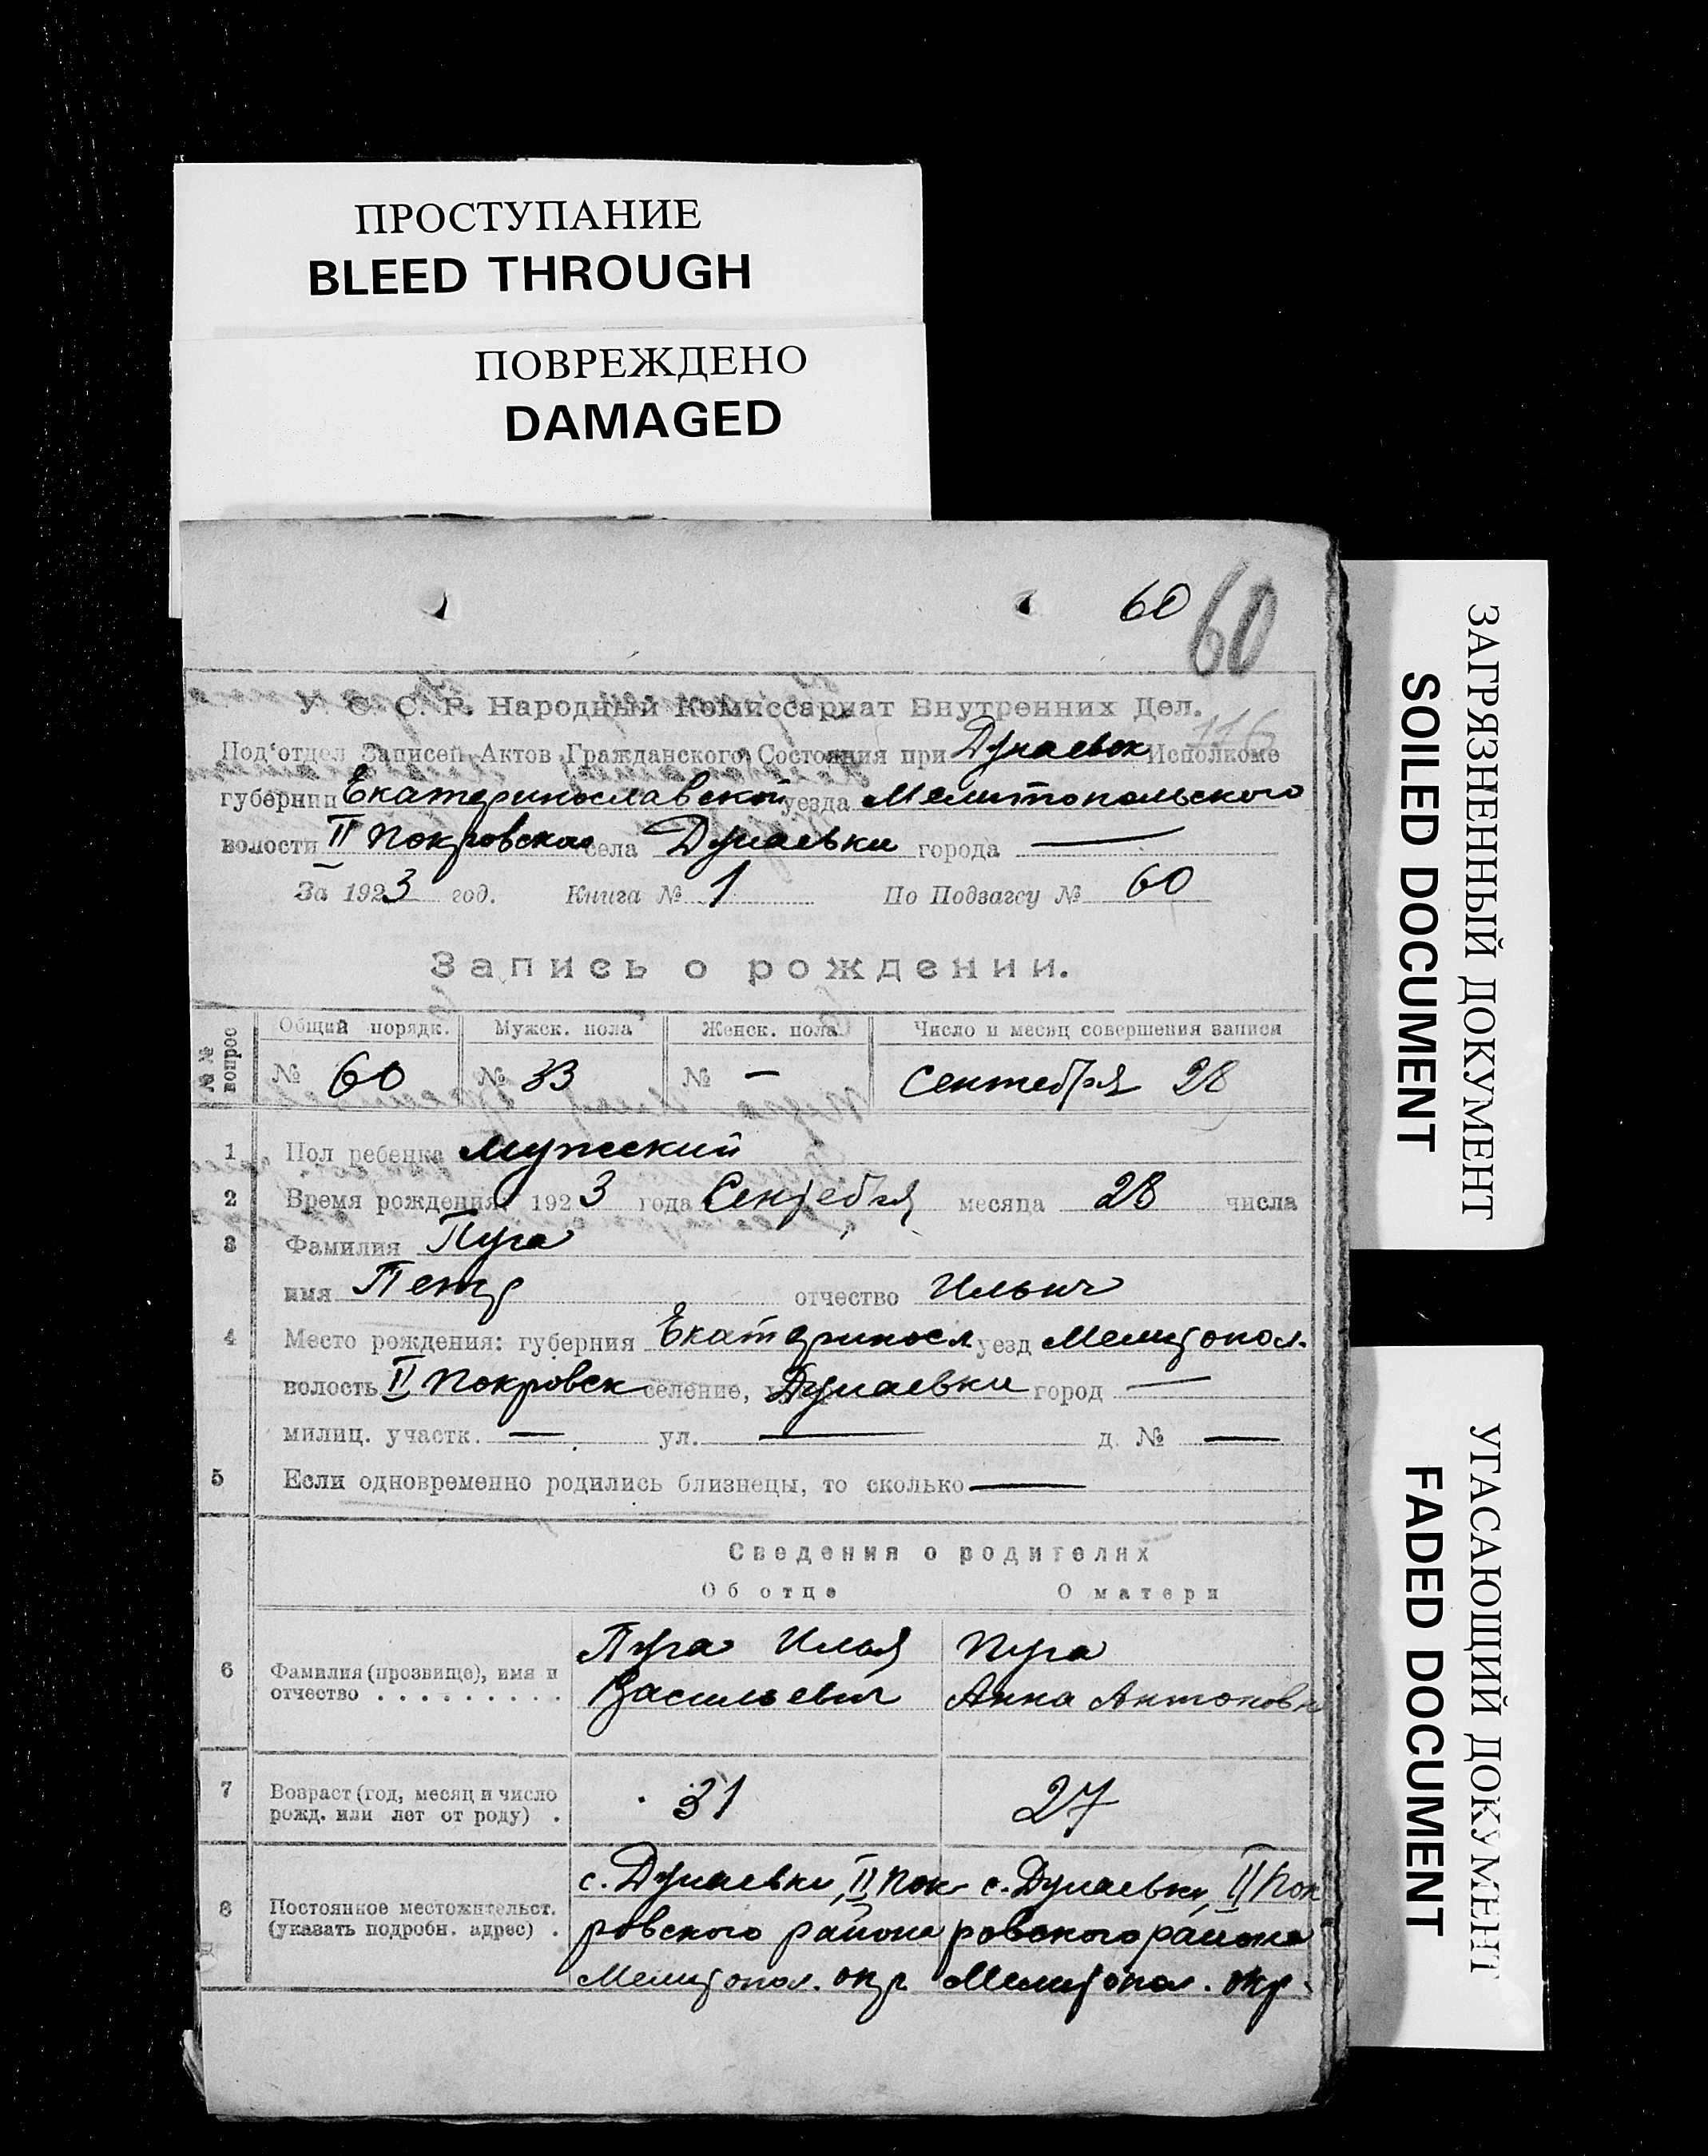 ПРОСТУПАНИЕ
BLEED THROUGH
ПОВРЕЖДЕНО
DAMAGED
60 60
У. С. С. Р. Народный Комиссариат Внутренних Дел.
116
Под'отдел Записей Актов Гражданского Состояния при Дунаевск Исполкоме
губернии Екатеринославской уезда Мелитопольского
волости II Покровской села Дунаевки города —
За 1923 год. Книга № 1 По Подзагсу № 60
Запись о рождении.
№№ вопрос
Общий порядк. Мужск. пола Женск. пола Число и месяц совершения записи
№ 60 № 33 № — Сентября 28
1 Пол ребенка мужеский
2 Время рождения, 1923 года Сентебря месяца 28 числа
3 Фамилия Пуга
имя Петр отчество Ильич
4 Место рождения: губерния Екатериносл уезд Мелитопол.
волость II Покровск селение, Дунаевки город —
милиц. участк. — ул. — д. № —
5 Если одновременно родились близнецы, то сколько —
Сведения о родителях
Об отце О матери
6 Фамилия (прозвище), имя и
отчество . . . . . . . . .
Пуга Илья
Васильевич
Пуга
Анна Антоновн
7 Возраст (год, месяц и число
рожд. или лет от роду) .
31 27
8 Постоянное местожительст.
(указать подробн. адрес) .
с. Дунаевки, II Пок
ровского района
Мелитопол. окр
с. Дунаевки, II Пок
ровского района
Мелитопол. окр.
ЗАГРЯЗНЕННЫЙ ДОКУМЕНТ
SOILED DOCUMENT
УГАСАЮЩИЙ ДОКУМЕНТ
FADED DOCUMENT